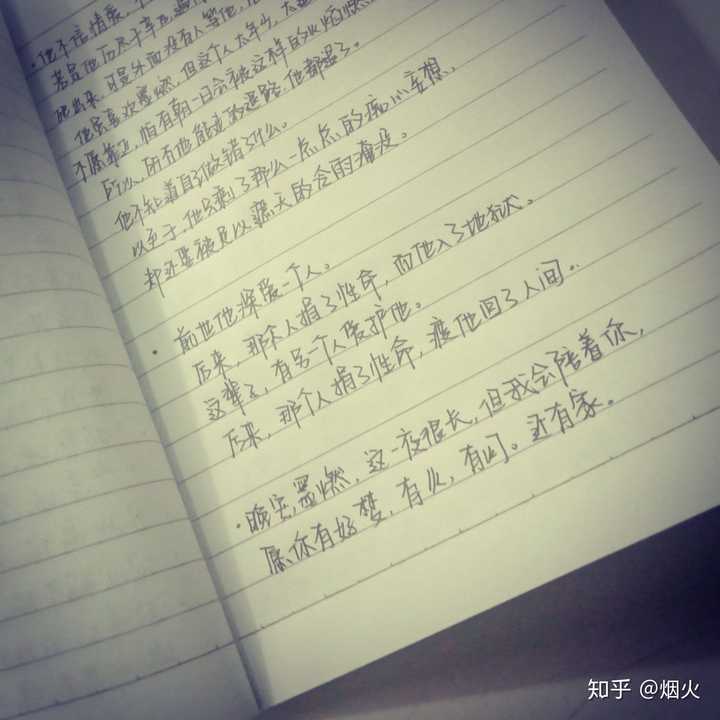 ·他不信情爱，不
若是他历尽千辛
爬出来，可是外面没有人等他，他
他只喜欢墨燃，但这个人太年少，太
不愿靠近，怕有朝一日会被这样的火焰燃
所以，所有他能走的退路，他都退了。
他不知道自己做错了什么。
以至于，他只剩了那么一点点的痴心妄想，
却还要被足以遮天的冷雨淹没。
·前世他深爱一个人。
后来，那个人捐了性命，而他入了地狱。
这辈子，有另一个人爱护他。
后来，那个人捐了性命，渡他回了人间。
·晚安，墨燃，这一夜很长，但我会陪着你，
愿你有好梦，有火，有灯。还有家。
知乎 @烟火